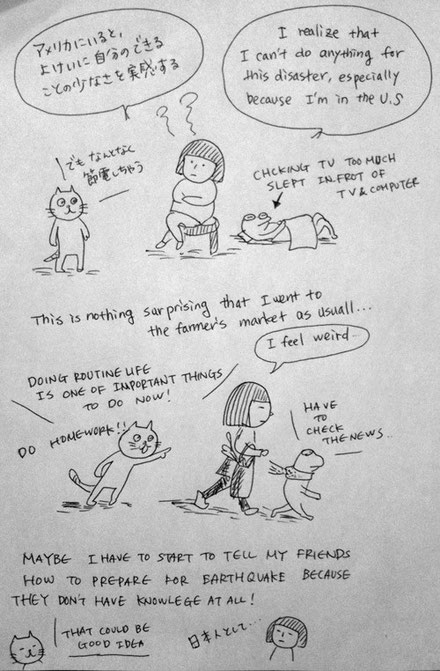 アメリカにいると、
よけいに自分のできる
ことの少なさを実感する
I realize that
I can't do anything for
this disaster, especially
because I'm in the U.S
でもなんとなく
節電しちゃう
CHCKING TV TOO MUCH
SLEPT IN FROT OF
TV & COMPUTER
This is nothing surprising that I went to
the farmer's market as usuall...
I feel weird...
DOING ROUTINE LIFE
IS ONE OF IMPORTANT THINGS
TO DO NOW!
DO HOMEWORK!!
HAVE
TO
CHECK
THE NEWS..
MAYBE I HAVE TO START TO TELL MY FRIENDS
HOW TO PREPARE FOR EARTHQUAKE BECAUSE
THEY DON'T HAVE KNOWLEGE AT ALL!
THAT COULD BE
GOOD IDEA
日本人として...